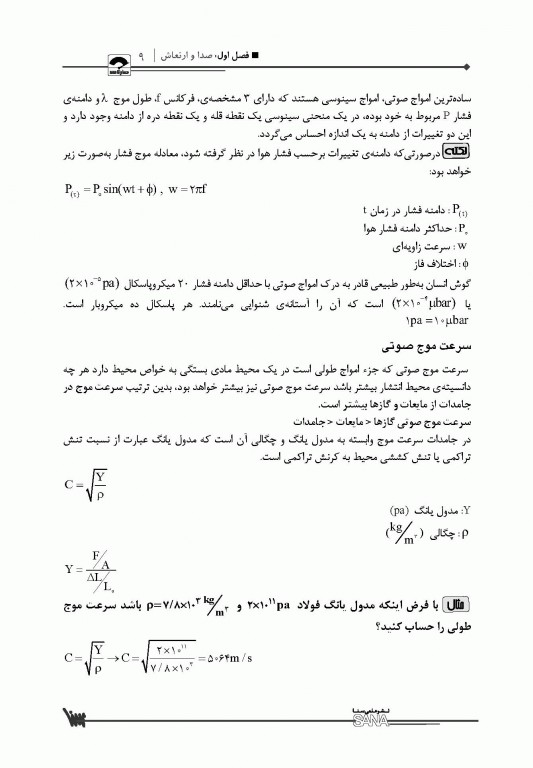 ■ فصل اول، صدا و ارتعاش | ۹
ساده‌ترین امواج صوتی، امواج سینوسی هستند که دارای ۳ مشخصه‌ی، فرکانس f، طول موج λ و دامنه‌ی
فشار P مربوط به خود بوده، در یک منحنی سینوسی یک نقطه قله و یک نقطه دره از دامنه وجود دارد و
این دو تغییرات از دامنه به یک اندازه احساس می‌گردد.
نکته درصورتی‌که دامنه‌ی تغییرات برحسب فشار هوا در نظر گرفته شود، معادله موج فشار به‌صورت زیر
خواهد بود:
P(t) = P₀ sin(wt + ϕ) , w = ۲πf
P(t) : دامنه فشار در زمان t
P₀ : حداکثر دامنه فشار هوا
w : سرعت زاویه‌ای
ϕ : اختلاف فاز
گوش انسان به‌طور طبیعی قادر به درک امواج صوتی با حداقل دامنه فشار ۲۰ میکروپاسکال (۲×۱۰⁻⁵ pa)
یا (۲×۱۰⁻⁴ μbar) است که آن را آستانه‌ی شنوایی می‌نامند. هر پاسکال ده میکروبار است.
۱pa = ۱۰μbar
سرعت موج صوتی
سرعت موج صوتی که جزء امواج طولی است در یک محیط مادی بستگی به خواص محیط دارد هر چه
دانسیته‌ی محیط انتشار بیشتر باشد سرعت موج صوتی نیز بیشتر خواهد بود، بدین ترتیب سرعت موج در
جامدات از مایعات و گازها بیشتر است.
سرعت موج صوتی گازها < مایعات < جامدات
در جامدات سرعت موج وابسته به مدول یانگ و چگالی آن است که مدول یانگ عبارت از نسبت تنش
تراکمی یا تنش کششی محیط به کرنش تراکمی است.
C = √(Y/ρ)
Y: مدول یانگ (pa)
ρ : چگالی (kg/m³)
Y = (F/A)/(ΔL/L₀)
مثال با فرض اینکه مدول یانگ فولاد ۲×۱۰¹¹ pa و ρ=۷/۸×۱۰³ kg/m³ باشد سرعت موج
طولی را حساب کنید؟
C = √(Y/ρ) → C = √(۲×۱۰¹¹ / ۷/۸×۱۰³) = ۵۰۶۴m/s
SANA